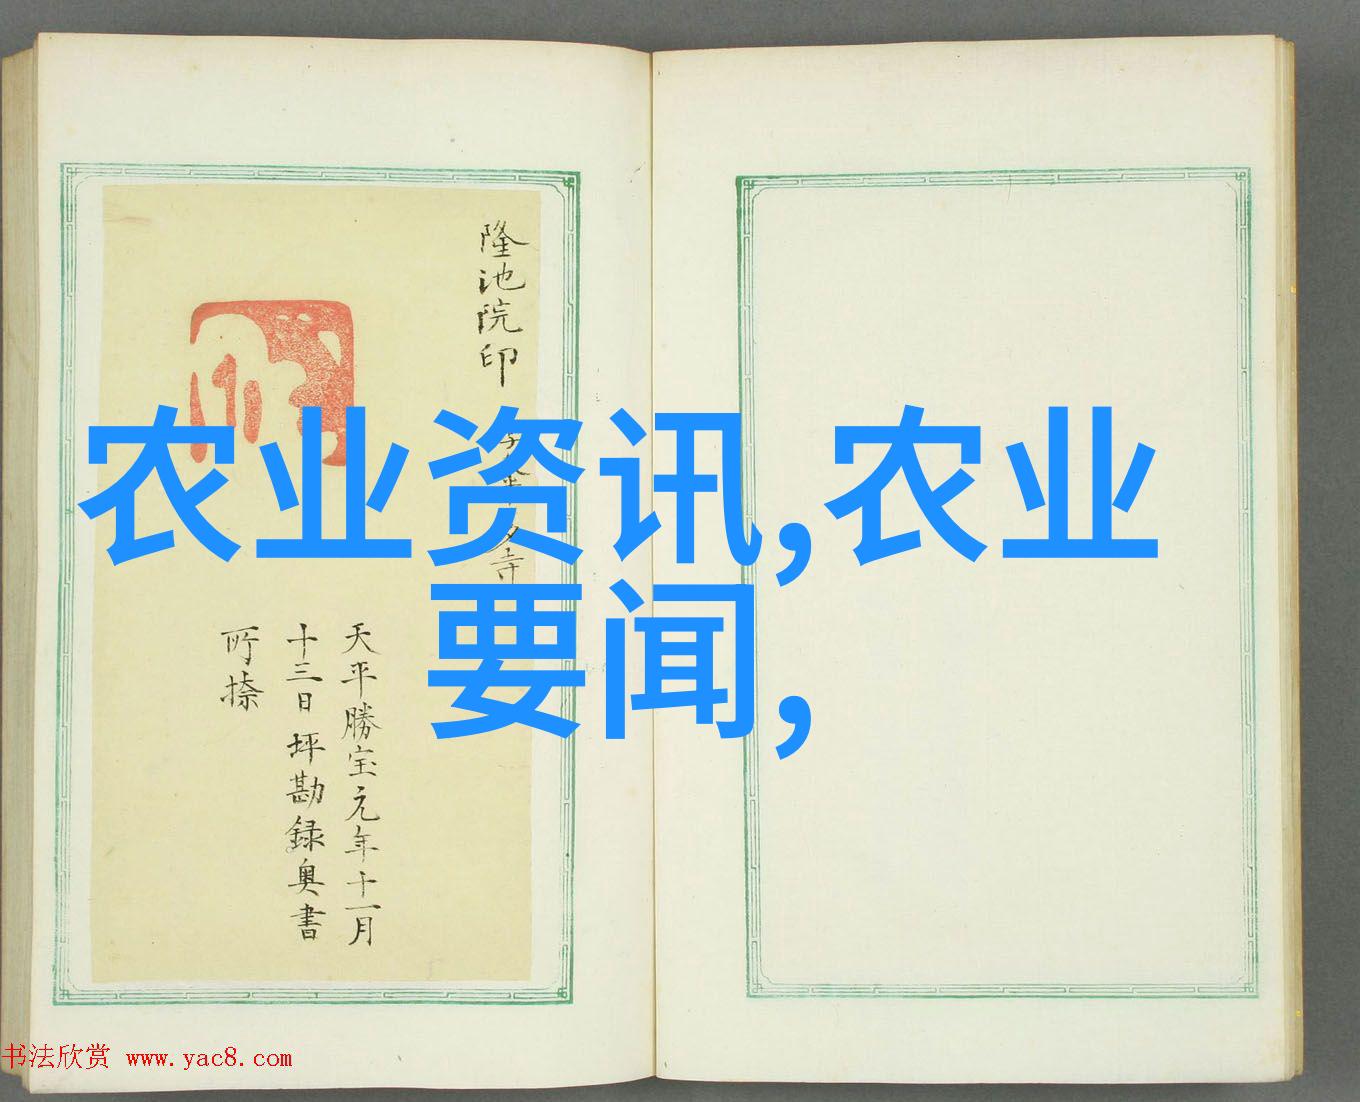 农业资讯,农业
要闻,
隆池院印
天平勝宝元年十一月
十三日坪勘録奥書
所捺
书法欣赏 www.yac8.com